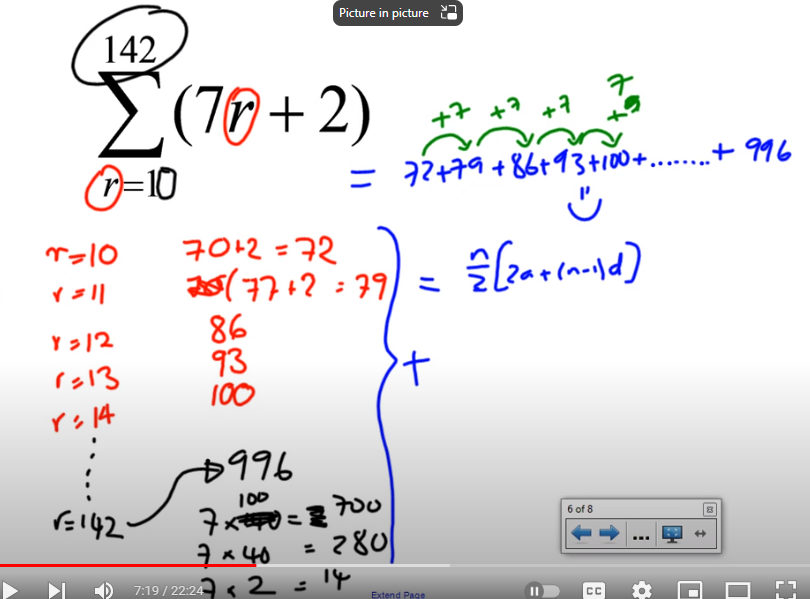 Picture in picture
142
∑(7r + 2)
r=10
+7 +7 +7 +
7
= 72+79+86+93+100+........+ 996
r=10 70+2 = 72
r=11 (77+2 = 79
r=12 86
r=13 93
r=14 100
= n/2[2a+(n-1)d]
+
r=142 996
7 × 100 = 700
7 × 40 = 280
7 × 2 = 14
6 of 8
...
7:19 / 22:24
CC
Extend Page